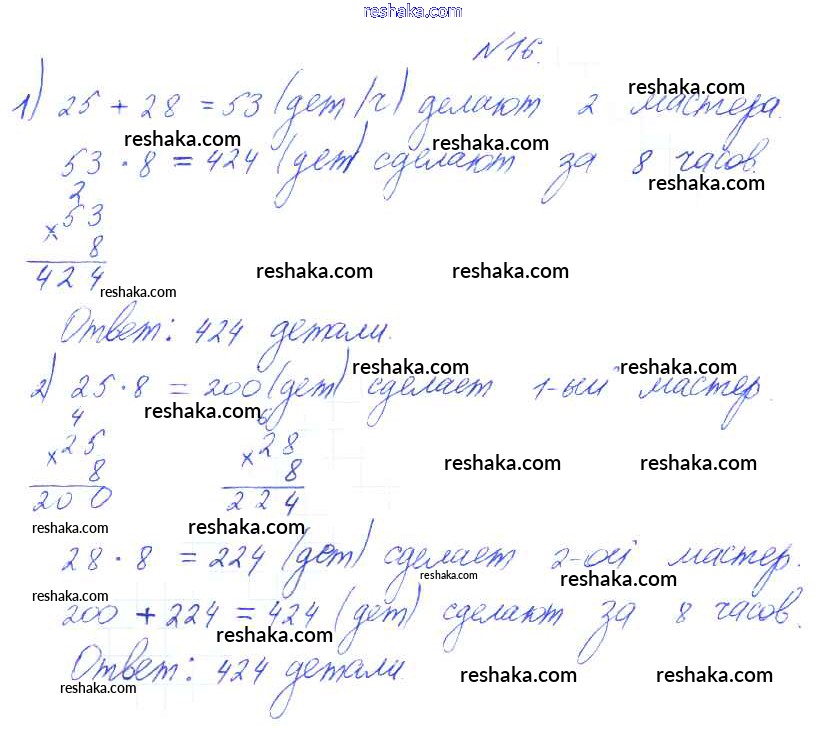 reshaka.com
№16.
1) 25 + 28 = 53 (дет/ч) делают 2 мастера.
reshaka.com
reshaka.com reshaka.com
53 · 8 = 424 (дет) сделают за 8 часов.
reshaka.com
2
× 53
8
424
reshaka.com reshaka.com reshaka.com
Ответ: 424 детали.
reshaka.com reshaka.com
2) 25 · 8 = 200 (дет) сделает 1-ый мастер.
reshaka.com reshaka.com
4 6
× 25 × 28
8 8
200 224
reshaka.com reshaka.com
reshaka.com reshaka.com
28 · 8 = 224 (дет) сделает 2-ой мастер.
reshaka.com reshaka.com
reshaka.com
200 + 224 = 424 (дет) сделают за 8 часов.
reshaka.com
Ответ: 424 детали.
reshaka.com reshaka.com reshaka.com reshaka.com